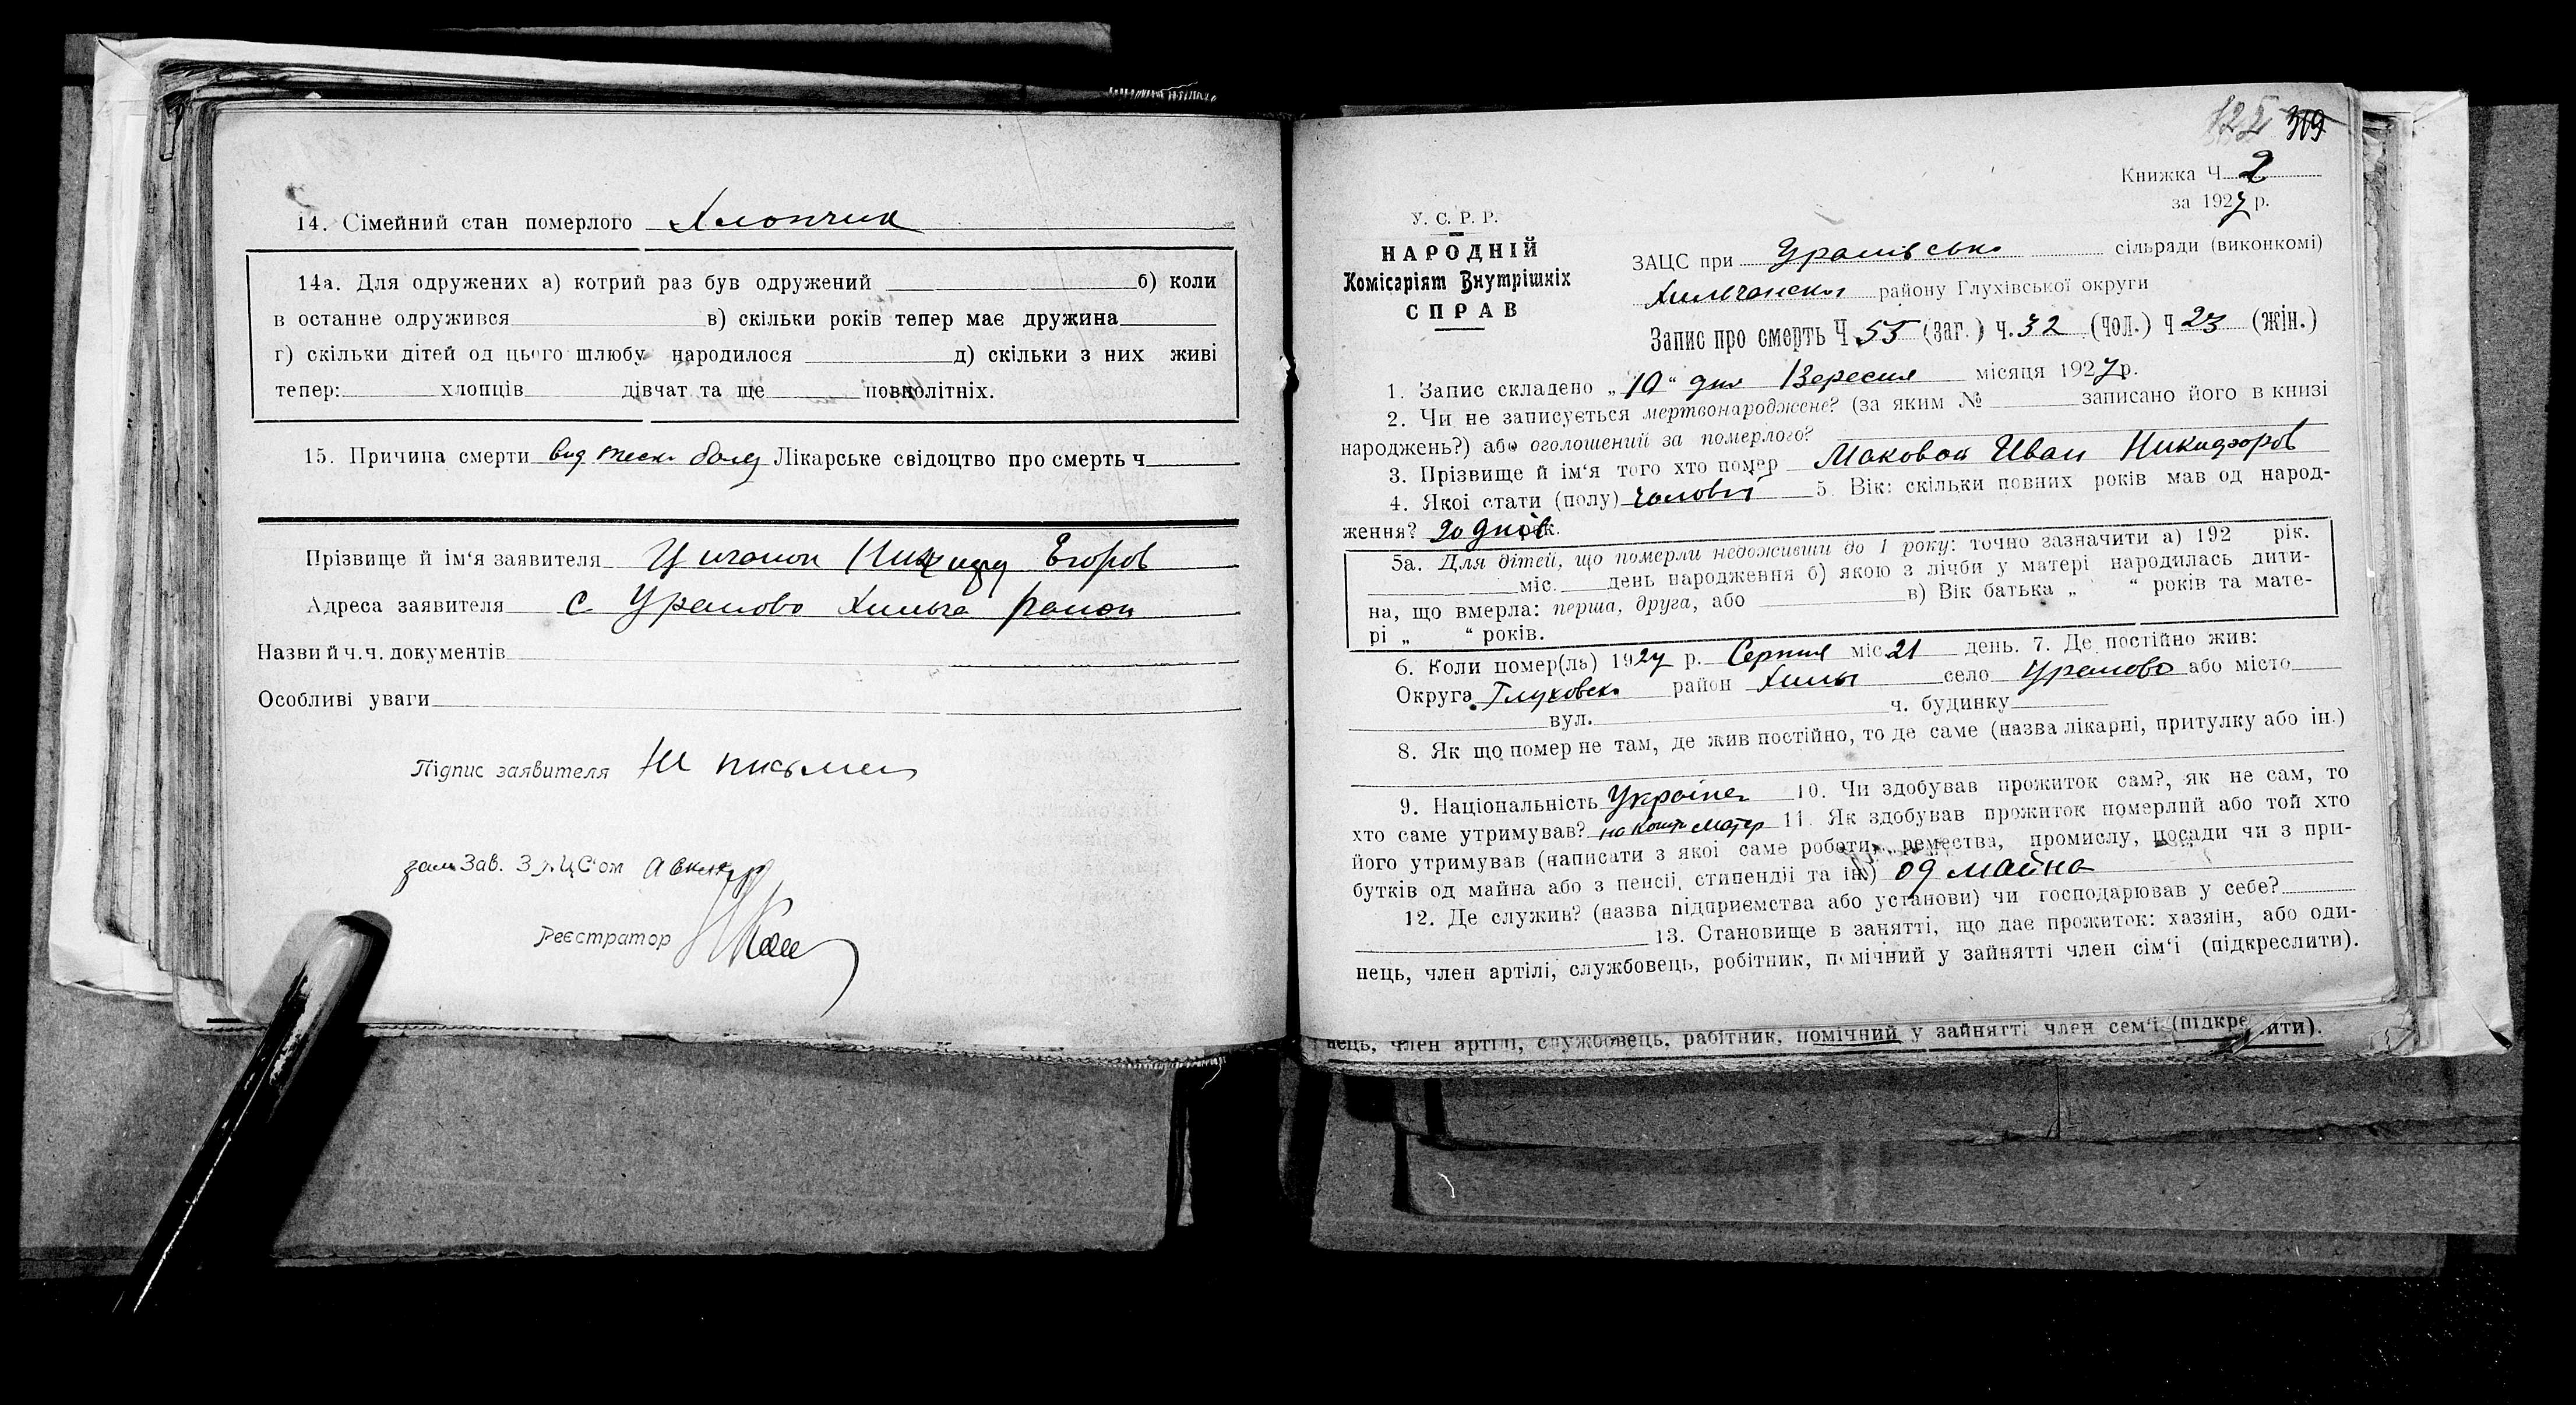 14. Сімейний стан померлого Хлопчик
14а. Для одружених а) котрий раз був одружений б) коли
в останнє одружився в) скільки років тепер має дружина
г) скільки дітей од цього шлюбу народилося д) скільки з них живі
тепер: хлопців дівчат та ще повнолітніх.
15. Причина смерти Лікарське свідоцтво про смерть ч
Прізвище й ім'я заявителя Егоров
Адреса заявителя с Уралово район
Назви й ч.ч. документів
Особливі уваги
Підпис заявителя Не письмен
зам Зав. ЗАЦС'ом
Реєстратор
319
Книжка Ч 2
за 1927 р.
У. С. Р. Р.
НАРОДНІЙ
Комісаріят Внутрішніх
СПРАВ
ЗАЦС при сільради (виконкомі)
району Глухівської округи
Запис про смерть Ч 55 (заг.) ч. 32 (чол.) ч 23 (жін.)
1. Запис складено „10" дня Вересня місяця 1927 р.
2. Чи не записується мертвонароджене? (за яким № записано його в книзі
народжень?) або оголошений за померлого?
3. Прізвище й ім'я того хто помер Маковой Иван Никифоров
4. Якої стати (полу) чоловічої 5. Вік: скільки повних років мав од народ-
ження? 20 днів
5а. Для дітей, що померли недоживши до 1 року: точно зазначити а) 192 рік.
міс. день народження б) якою з лічби у матері народилась дити-
на, що вмерла: перша, друга, або в) Вік батька „ “ років та мате-
рі „ “ років.
6. Коли помер(ла) 1927 р. Серпня міс 21 день. 7. Де постійно жив:
Округа Глуховск район село Уралово або місто
вул. ч. будинку
8. Як що помер не там, де жив постійно, то де саме (назва лікарні, притулку або ін.)
9. Національність 10. Чи здобував прожиток сам?, як не сам, то
хто саме утримував? 11. Як здобував прожиток померлий або той хто
його утримував (написати з якої саме роботи, ремества, промислу, посади чи з при-
бутків од майна або з пенсії, стипендії та ін.) од майна
12. Де служив? (назва підприємства або установи) чи господарював у себе?
13. Становище в занятті, що дає прожиток: хазяїн, або оди-
нець, член артілі, службовець, робітник, помічний у зайнятті член сім'ї (підкреслити).
нець, член артілі, службовець, рабітник, помічний у зайнятті член сем'ї (підкре ити).